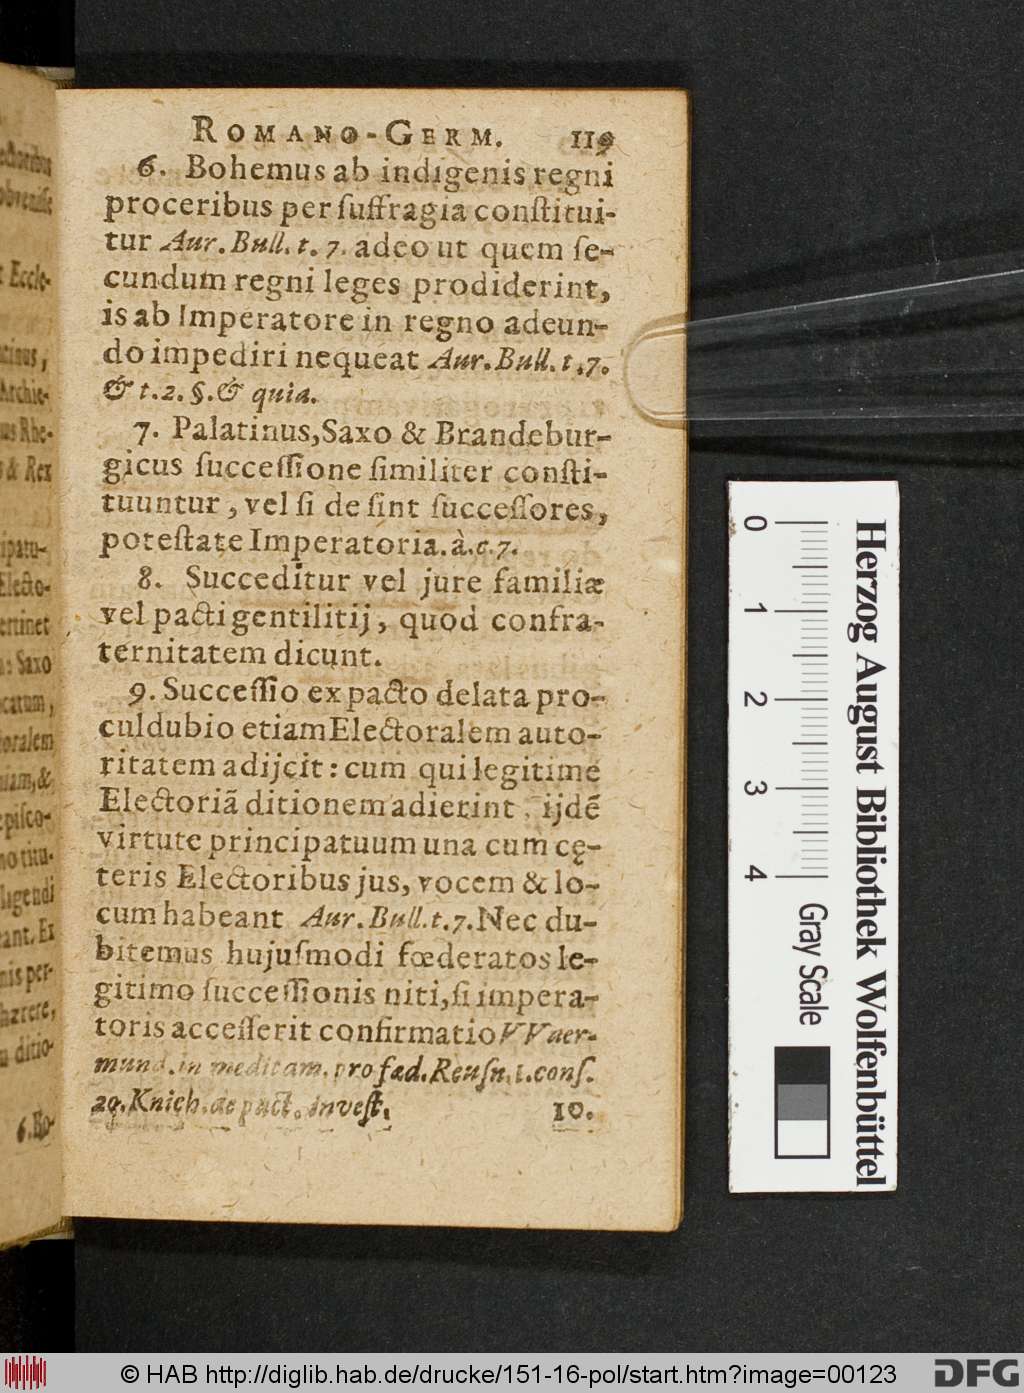 ROMANO-GERM. 119
6. Bohemus ab indigenis regni
proceribus per ſuffragia conſtitui-
tur Aur. Bull. t. 7. adeo ut quem ſe-
cundum regni leges prodiderint,
is ab Imperatore in regno adeun-
do impediri nequeat Aur. Bull. t. 7.
& t. 2. §. & quia.
7. Palatinus, Saxo & Brandebur-
gicus ſucceſſione ſimiliter conſti-
tuuntur, vel ſi de ſint ſucceſſores,
poteſtate Imperatoria. à. c. 7.
8. Succeditur vel jure familiæ
vel pacti gentilitij, quod confra-
ternitatem dicunt.
9. Succeſſio ex pacto delata pro-
culdubio etiam Electoralem auto-
ritatem adijcit: cum qui legitime
Electoriā ditionem adierint, ijdē
virtute principatuum una cum cę-
teris Electoribus jus, vocem & lo-
cum habeant Aur. Bull. t. 7. Nec du-
bitemus hujuſmodi fœderatos le-
gitimo ſucceſſionis niti, ſi impera-
toris acceſſerit confirmatio VVaer-
mund. in meditam. pro fœd. Reuſn. 1. conſ.
29. Knich. de pact. inveſt.
10.
Eccle-
tinus,
Archie-
us Rhe-
& Rex
ipatu-
Electo-
ertinet
: Saxo
catum,
oralem
piſco-
no titu-
ligendi
ant. Ex
nis per-
hærere,
ditio-
6. Bo-
0 1 2 3 4
Gray Scale
Herzog August Bibliothek Wolfenbüttel
© HAB http://diglib.hab.de/drucke/151-16-pol/start.htm?image=00123
DFG